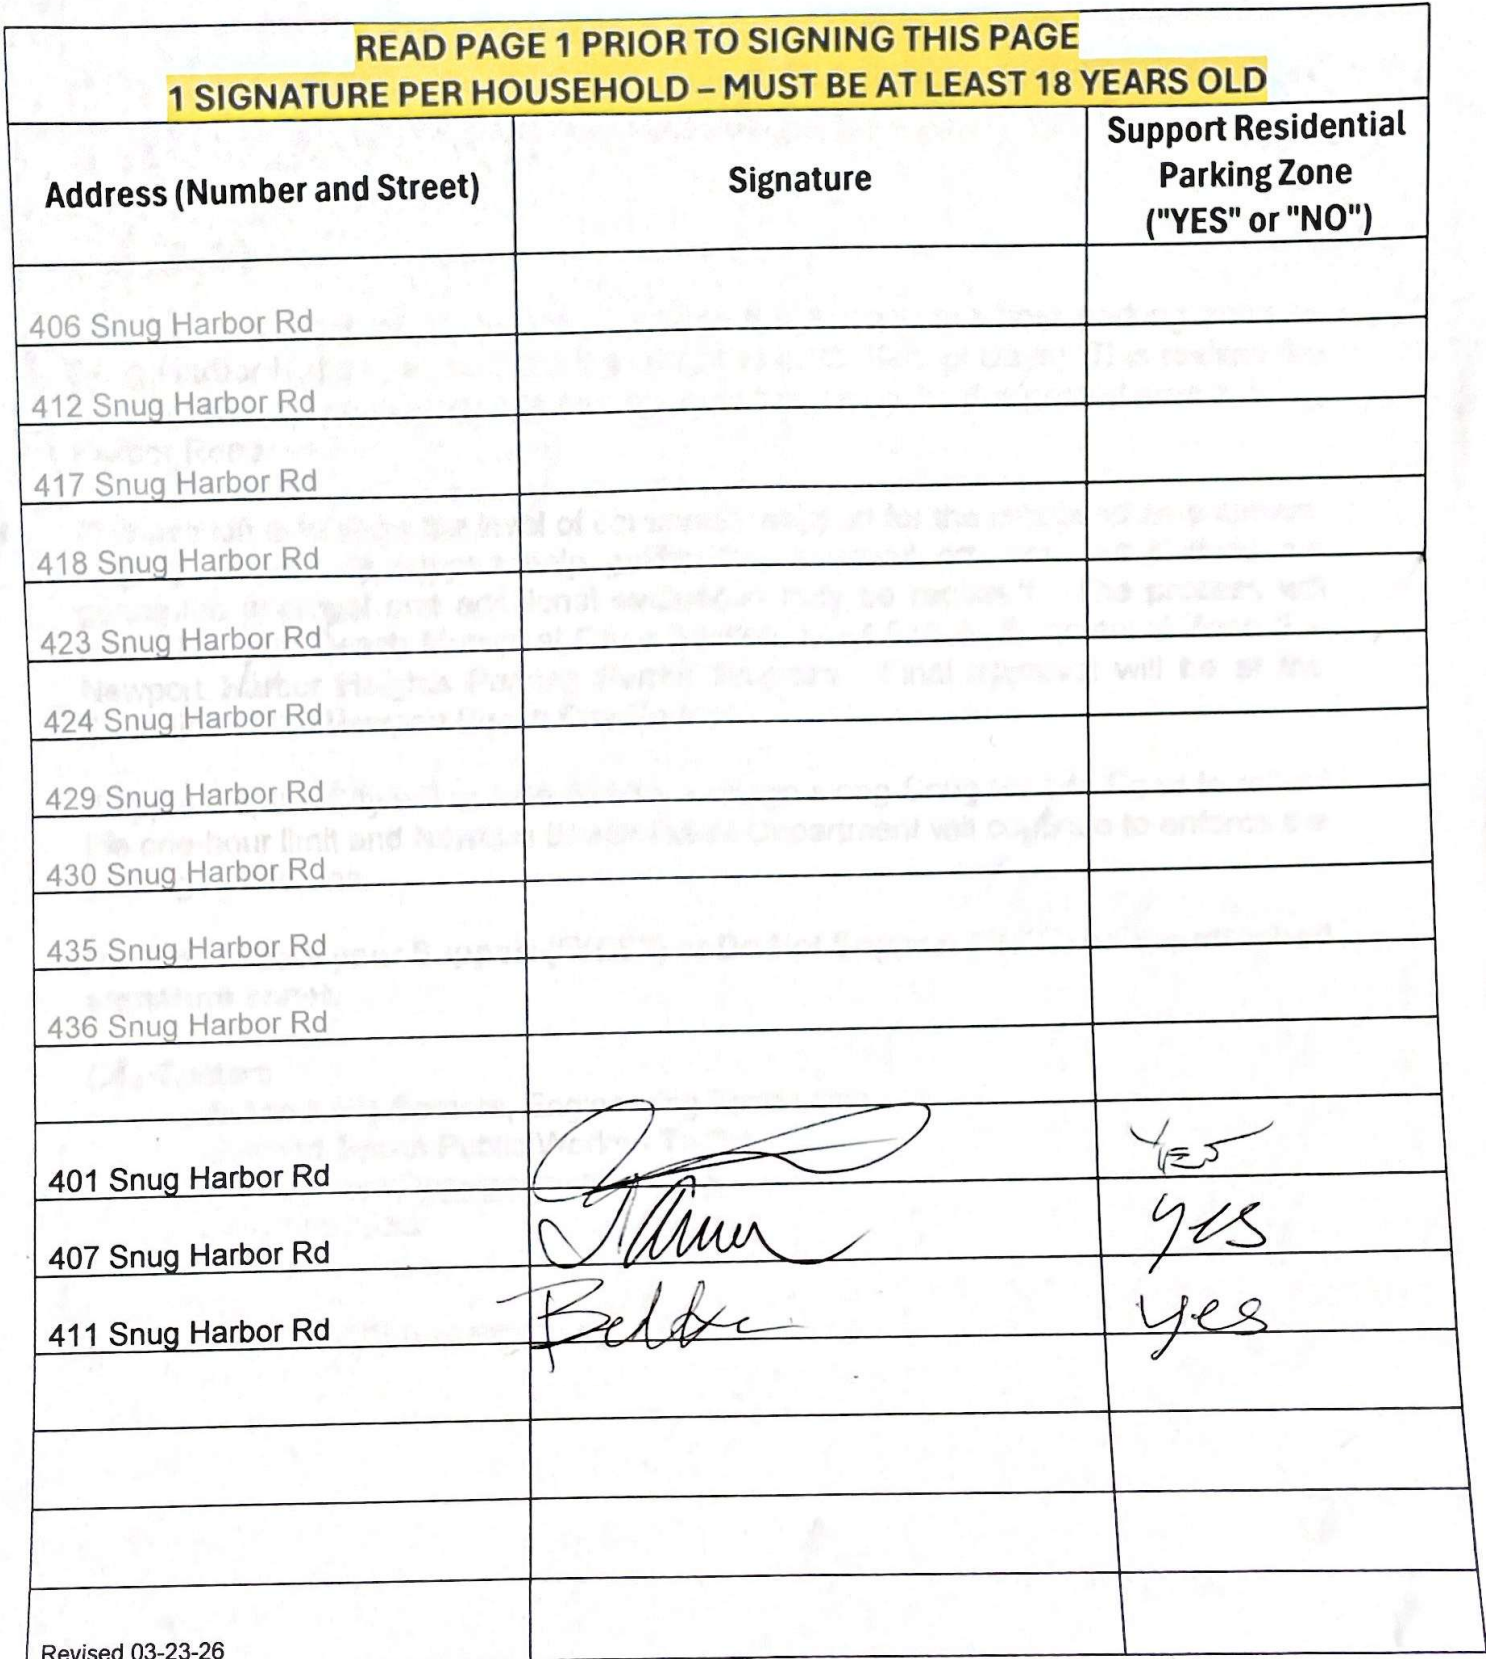 READ PAGE 1 PRIOR TO SIGNING THIS PAGE
1 SIGNATURE PER HOUSEHOLD – MUST BE AT LEAST 18 YEARS OLD
Address (Number and Street)
Signature
Support Residential
Parking Zone
("YES" or "NO")
406 Snug Harbor Rd
412 Snug Harbor Rd
417 Snug Harbor Rd
418 Snug Harbor Rd
423 Snug Harbor Rd
424 Snug Harbor Rd
429 Snug Harbor Rd
430 Snug Harbor Rd
435 Snug Harbor Rd
436 Snug Harbor Rd
401 Snug Harbor Rd YES
407 Snug Harbor Rd yes
411 Snug Harbor Rd yes
Revised 03-23-26